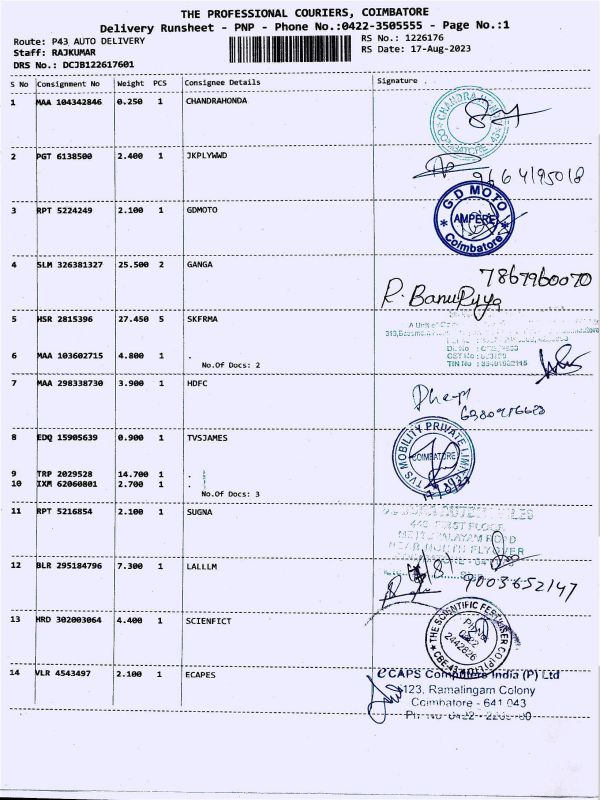 THE PROFESSIONAL COURIERS, COIMBATORE
Delivery Runsheet - PNP - Phone No.:0422-3505555 - Page No.:1
Route: P43 AUTO DELIVERY
RS No.: 1226176
Staff: RAJKUMAR
RS Date: 17-Aug-2023
DRS No.: DCJB122617601
S No Consignment No Weight PCS Consignee Details Signature
1 MAA 104342846 0.250 1 CHANDRAHONDA
CHANDRA HONDA
COIMBATORE
2 PGT 6138500 2.400 1 JKPLYWWD
9664195018
3 RPT 5224249 2.100 1 GDMOTO
G.D MOTO
AMPERE
Coimbatore
4 SLM 326381327 25.500 2 GANGA
7867960070
R. BanuPriya
5 HSR 2815396 27.450 5 SKFRMA
6 MAA 103602715 4.800 1 .
No.Of Docs: 2
7 MAA 298338730 3.900 1 HDFC
8 EDQ 15905639 0.900 1 TVSJAMES
TVS MOBILITY PRIVATE LIMITED
COIMBATORE
9 TRP 2029528 14.700 1 .
10 IXM 62060801 2.700 1 .
No.Of Docs: 3
11 RPT 5216854 2.100 1 SUGNA
FIRST FLOOR
12 BLR 295184796 7.300 1 LALLLM
9003652147
13 HRD 302003064 4.400 1 SCIENFICT
THE SCIENTIFIC FERTILISER CO PVT LTD
2442626
14 VLR 4543497 2.100 1 ECAPES
eCAPS Computers India (P) Ltd
123, Ramalingam Colony
Coimbatore - 641 043